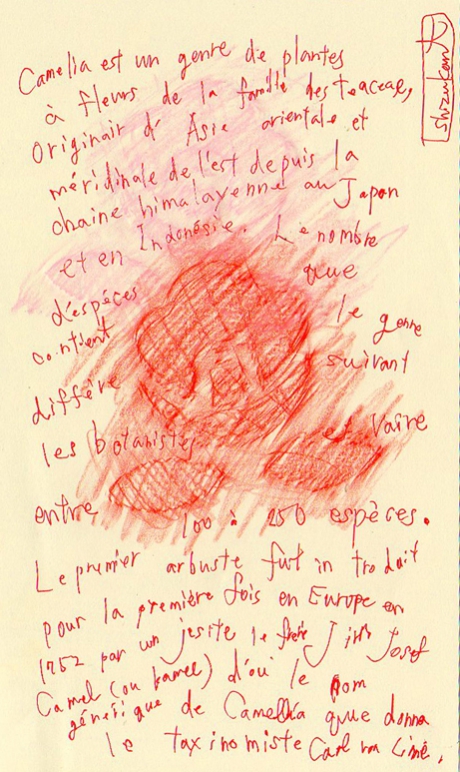 Camelia est un genre de plantes
à fleurs de la famille des teaceae,
originair d'Asie orientale et
méridinale de l'est depuis la
chaine himalayenne au Japan
et en Indonésie. Le nombre
d'espèces que
contient le genre
diffère suivant
les botanistes et vaire
entre 100 à 250 espèces.
Le premier arbuste fut in troduit
pour la première fois en Europe en
1752 par un jesite le frère Jiri Josef
Camel (ou kamel) d'oú le nom
générique de Camellia que donna
le taxinomiste Carl
shizukand